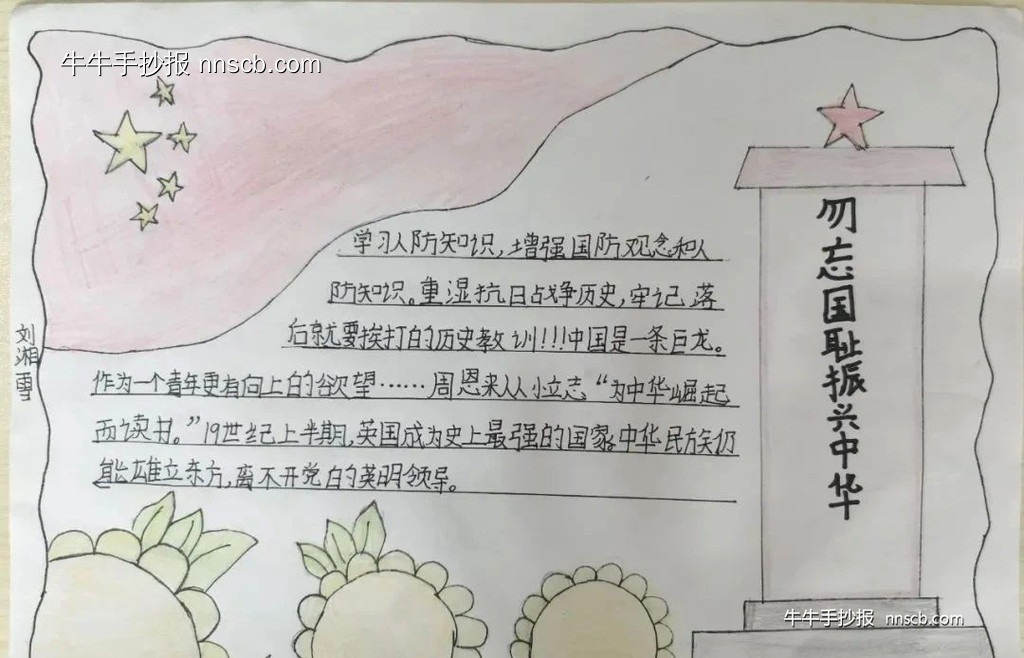 牛牛手抄报 nnscb.com
学习人防知识,增强国防观念和人
防知识。重湿抗日战争历史,牢记落
后就要挨打的历史教训!!!中国是一条巨龙。
作为一个青年更有向上的欲望……周恩来从小立志“为中华崛起
而读书。”19世纪上半期,英国成为史上最强的国家。中华民族仍
能雄立东方,离不开党的英明领导。
勿忘国耻振兴中华
刘湘雪
牛牛手抄报 nnscb.com